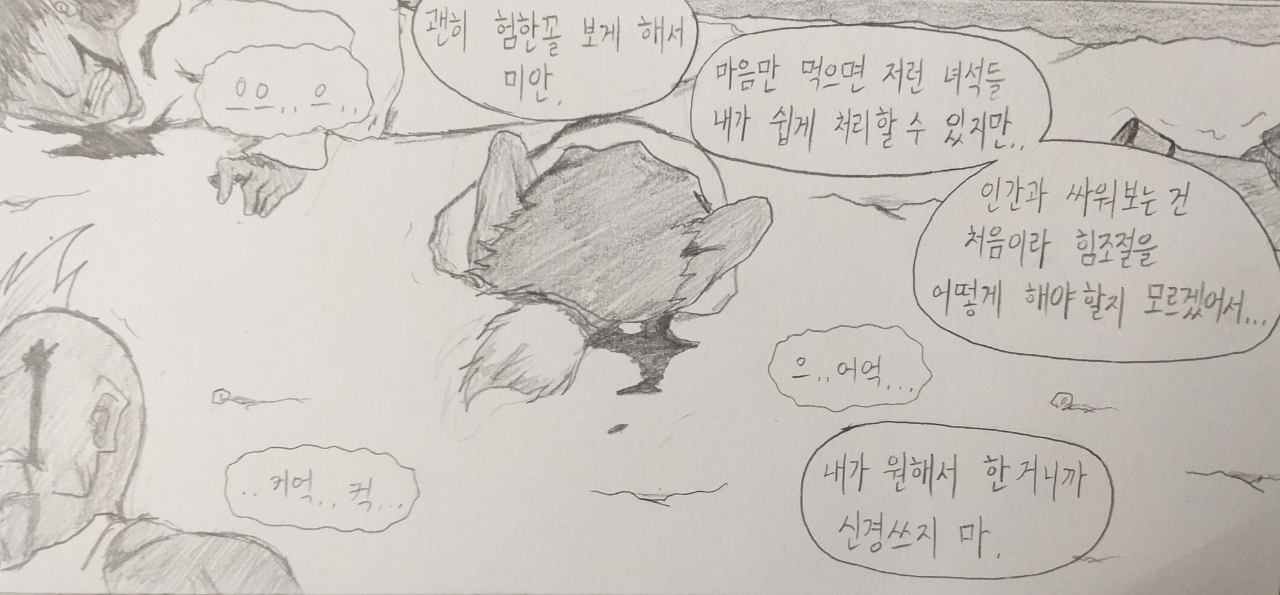 괜히 험한꼴 보게 해서
미안.
으으.. 으..
마음만 먹으면 저런 녀석들
내가 쉽게 처리할 수 있지만..
인간과 싸워보는 건
처음이라 힘조절을
어떻게 해야 할지 모르겠어서...
으..어억...
..커억.. 컥...
내가 원해서 한 거니까
신경쓰지 마.